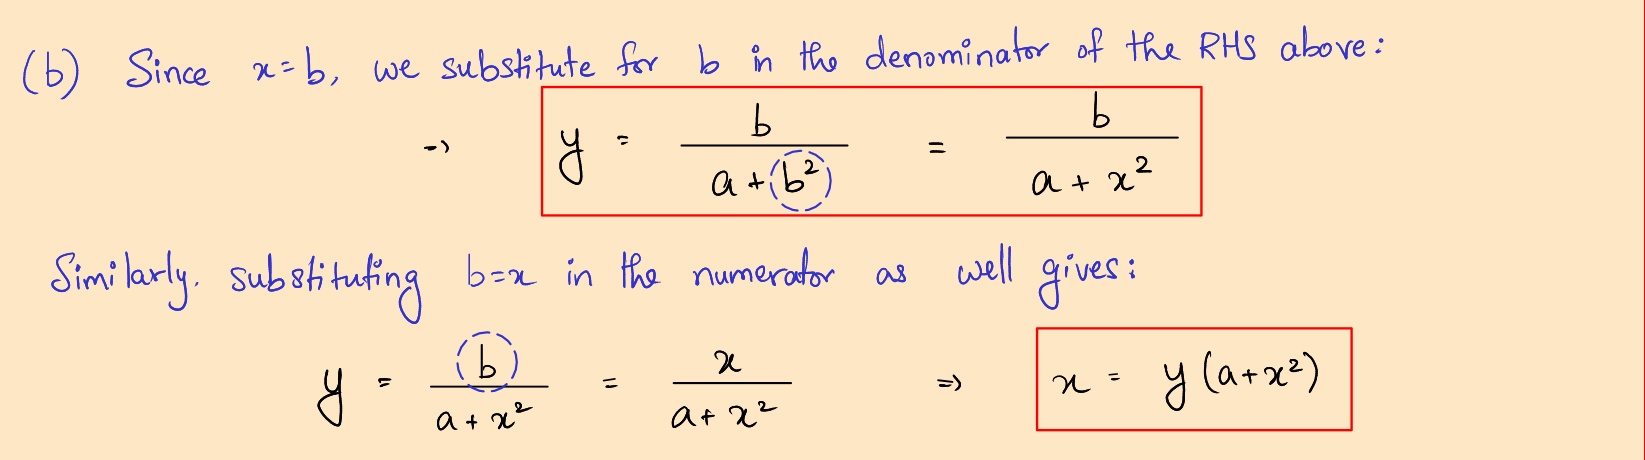 (b) Since x=b, we substitute for b in the denominator of the RHS above:
→ y = b / (a + b²) = b / (a + x²)
Similarly, substituting b=x in the numerator as well gives:
y = b / (a + x²) = x / (a + x²) ⇒ x = y (a+x²)